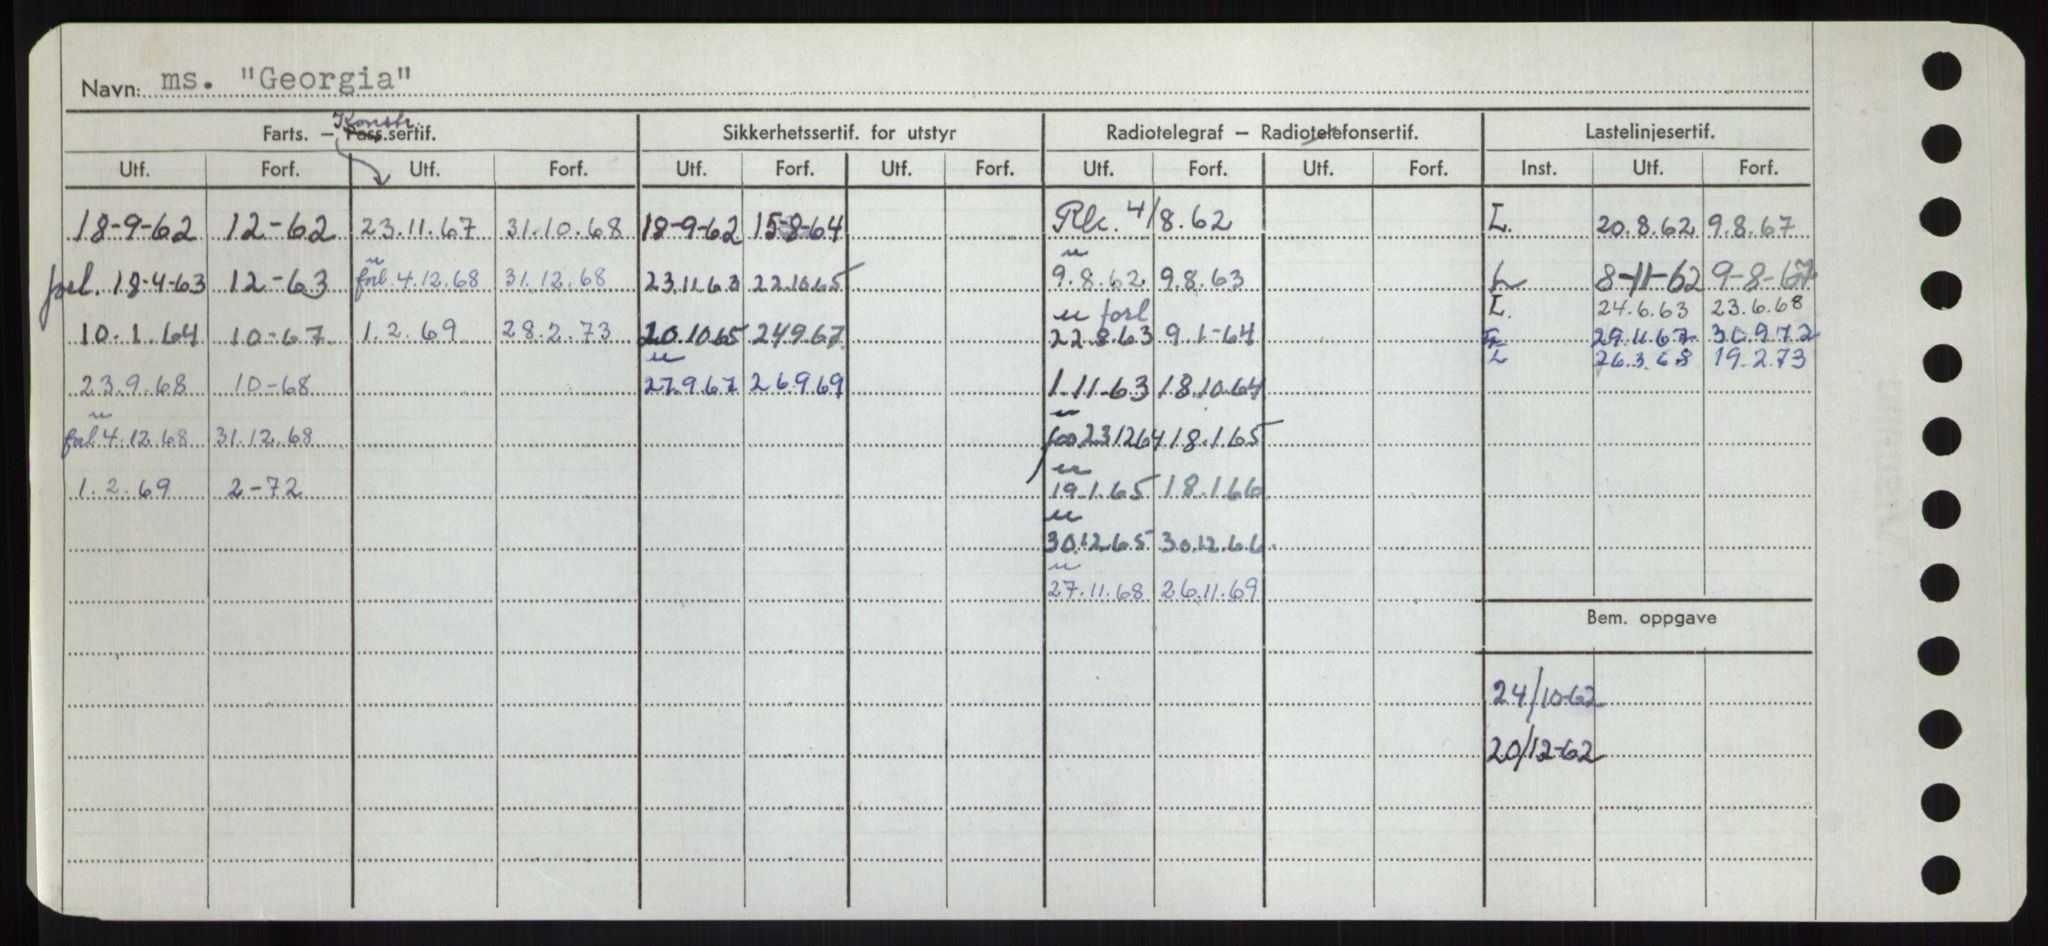 Navn: ms. "Georgia"
Konstr.
Farts. – Pass.sertif. Sikkerhetssertif. for utstyr Radiotelegraf – Radiotelefonsertif. Lastelinjesertif.
Utf. Forf. Utf. Forf. Utf. Forf. Utf. Forf. Utf. Forf. Utf. Forf. Inst. Utf. Forf.
18-9-62 12-62 23.11.67 31.10.68 18-9-62 15-8-64 4/8.62 L. 20.8.62 9.8.67
forl. 18-4-63 12-63 forl. 4.12.68 31.12.68 23.11.63 22.10.65 9.8.62 9.8.63 L 8-11-62 9-8-67
forl L. 24.6.63 23.6.68
10.1.64 10-67 1.2.69 28.2.73 20.10.65 24.9.67 22.8.63 9.1-64 29.11.67 30.9.72
L 26.3.68 19.2.73
23.9.68 10-68 27.9.67 26.9.69 1.11-63 18.10.64
forl 4.12.68 31.12.68 23.12.64 18.1.65
1.2.69 2-72 19.1.65 18.1.66
30.12.65 30.12.66
27.11.68 26.11.69
Bem. oppgave
24/10-62
20/12-62